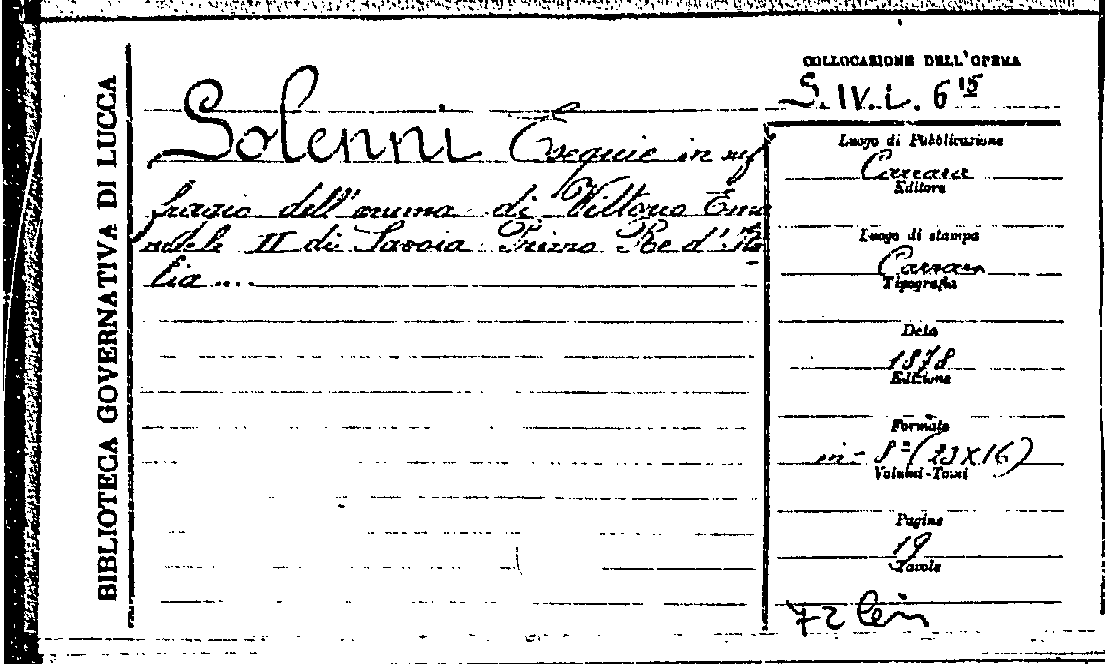 BIBLIOTECA GOVERNATIVA DI LUCCA
Solenni Esequie in suf
fragio dell'anima di Vittorio Ema
nuele II di Savoia Primo Re d'Ita
lia ....
COLLOCAZIONE DELL'OPERA
S. IV. L. 6 15
Luogo di Pubblicazione
Carrara
Editore
Luogo di stampa
Carrara
Tipografia
Data
1878
Edizione
Formato
in-8° (23X16)
Volumi-Tomi
Pagine
19
Tavole
72